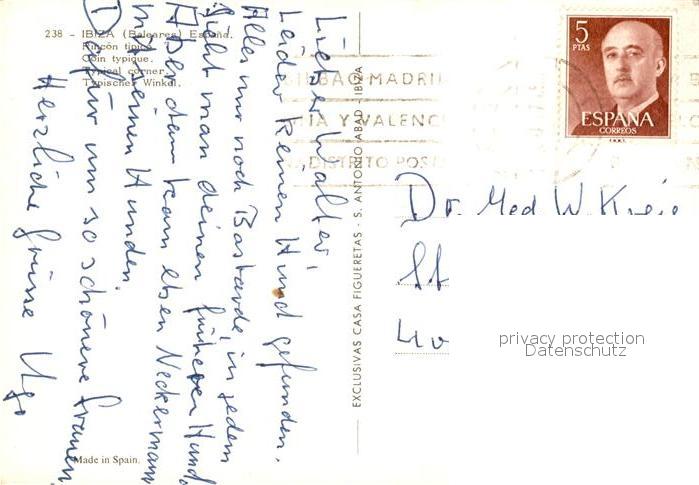 238 - IBIZA (Baleares) España.
Rincón típico.
Coin typique.
Typical corner.
Typischer Winkel.
Lieber Walter,
Leider keinen Hund gefunden.
Alles nur noch Bastarde, in jedem
sieht man deinen früheren Hund
Aber dann kam eben Neckermann
mit seinen Hunden.
Dafür um so schönere Frauen.
Herzliche Grüsse Ugo
Made in Spain.
EXCLUSIVAS CASA FIGUERETAS - S. ANTONIO ABAD - IBIZA
BILBAO-MADRI
IA Y VALENC
DISTRITO POS
5
PTAS
ESPAÑA
CORREOS
Dr. Med W. Kreie
privacy protection
Datenschutz